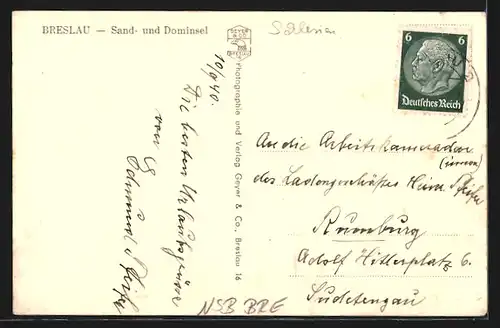 BRESLAU — Sand- und Dominsel
GEYER
& CO
BRESLAU
16
Schlesien
10/9 40.
Die besten Urlaubsgrüsse
von E
Edmund Pfeifer
Photographie und Verlag Geyer & Co., Breslau 16
6 6
Deutsches Reich
An die Arbeitskameraden
(innen)
des Ladengeschäftes Heinr. Pfeifer
Rumburg
Adolf Hitlerplatz 6.
Sudetengau
NSB BRE